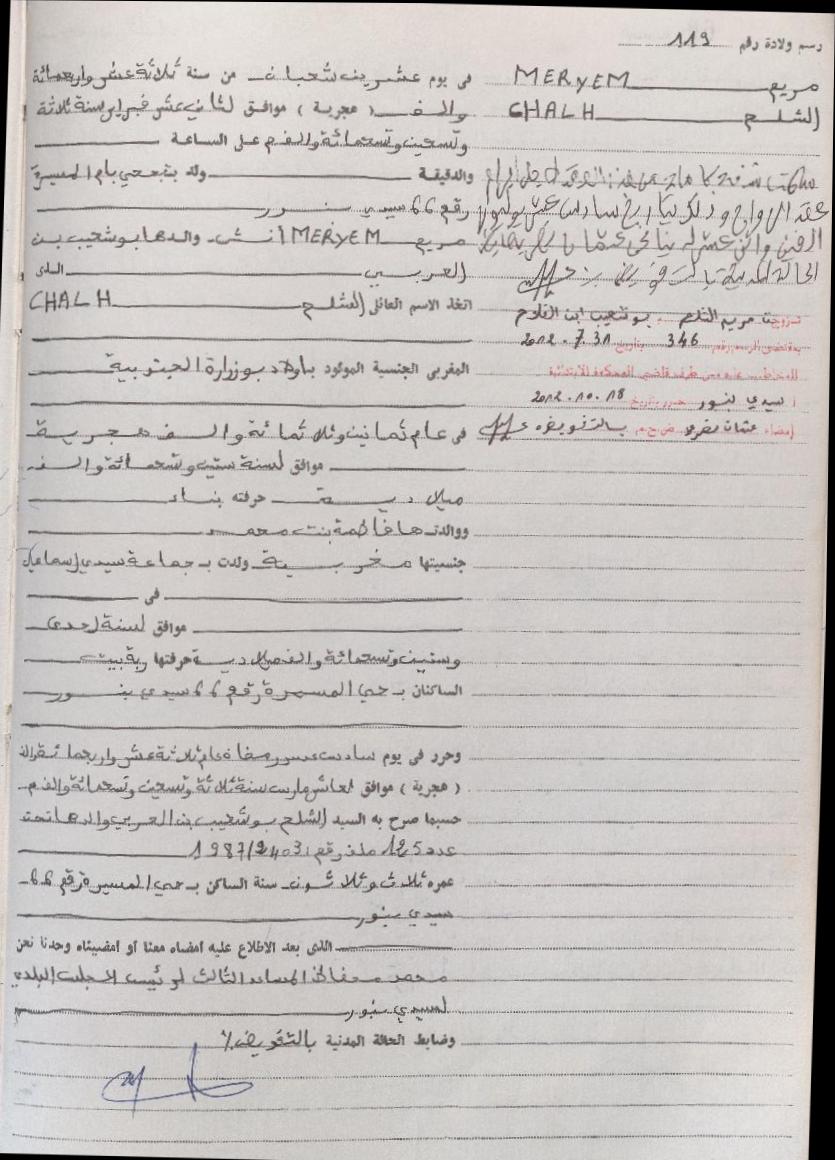 رسم ولادة رقم 113
مريم MERYEM
الشلح CHALH
سلمت نسخة كاملة من هذا العقد لأجل إبرام
عقد الزواج وذلك بتاريخ سادس عشر يوليوز
ألفين واثني عشر
الحالة المدنية
تزوجت مريم الشلح بـ بوشعيب ابن الفلاح
بمقتضى الرسم رقم 346 بتاريخ 2012.7.31
المخاطب عليه من طرف قاضي المحكمة الابتدائية
بـ سيدي بنور حرر بتاريخ 2012.10.18
إمضاء ض ح م بالتفويض
فى يوم عشرين شعبان من سنة ثلاثة عشر واربعمائة
والف (هجرية) موافق لثاني عشر فبراير سنة ثلاثة
وتسعين وتسعمائة والف م على الساعة
والدقيقة ولد بـ بحي بام المسيرة
رقم 66 سيدي بنور
مريم MERYEM انثى والدها بوشعيب بن
العربي الذى
اتخذ الاسم العائلى الشلح CHALH
المغربى الجنسية المولود باولاد بوزرارة الجنوبية
فى عام ثمانين وثلاثمائة والف هجرية
موافق لسنة ستين وتسعمائة والف
ميلادية حرفته بناء
ووالدتها فاطمة بنت محمد
جنسيتها مغربية ولدت بـ جماعة سيدي اسماعيل
فى
موافق لسنة احدى
وستين وتسعمائة والف ميلادية حرفتها ربة بيت
الساكنان بـ حي المسيرة رقم 66 سيدي بنور
وحرر فى يوم سادس عشر رمضان عام ثلاثة عشر واربعمائة والف
(هجرية) موافق لعاشر مارس سنة ثلاثة وتسعين وتسعمائة والف م
حسبما صرح به السيد الشلح بوشعيب بن العربي والدها تحت
عدد 125 ملف رقم: 1987/2403
عمره ثلاث وثلاثون سنة الساكن بـ حي المسيرة رقم 66
سيدي بنور
الذى بعد الاطلاع عليه أمضاه معنا أو أمضيناه وحدنا نحن
محمد المساعد الثالث لرئيس المجلس البلدي
لسيدي بنور
وضابط الحالة المدنية بالتفويض٪